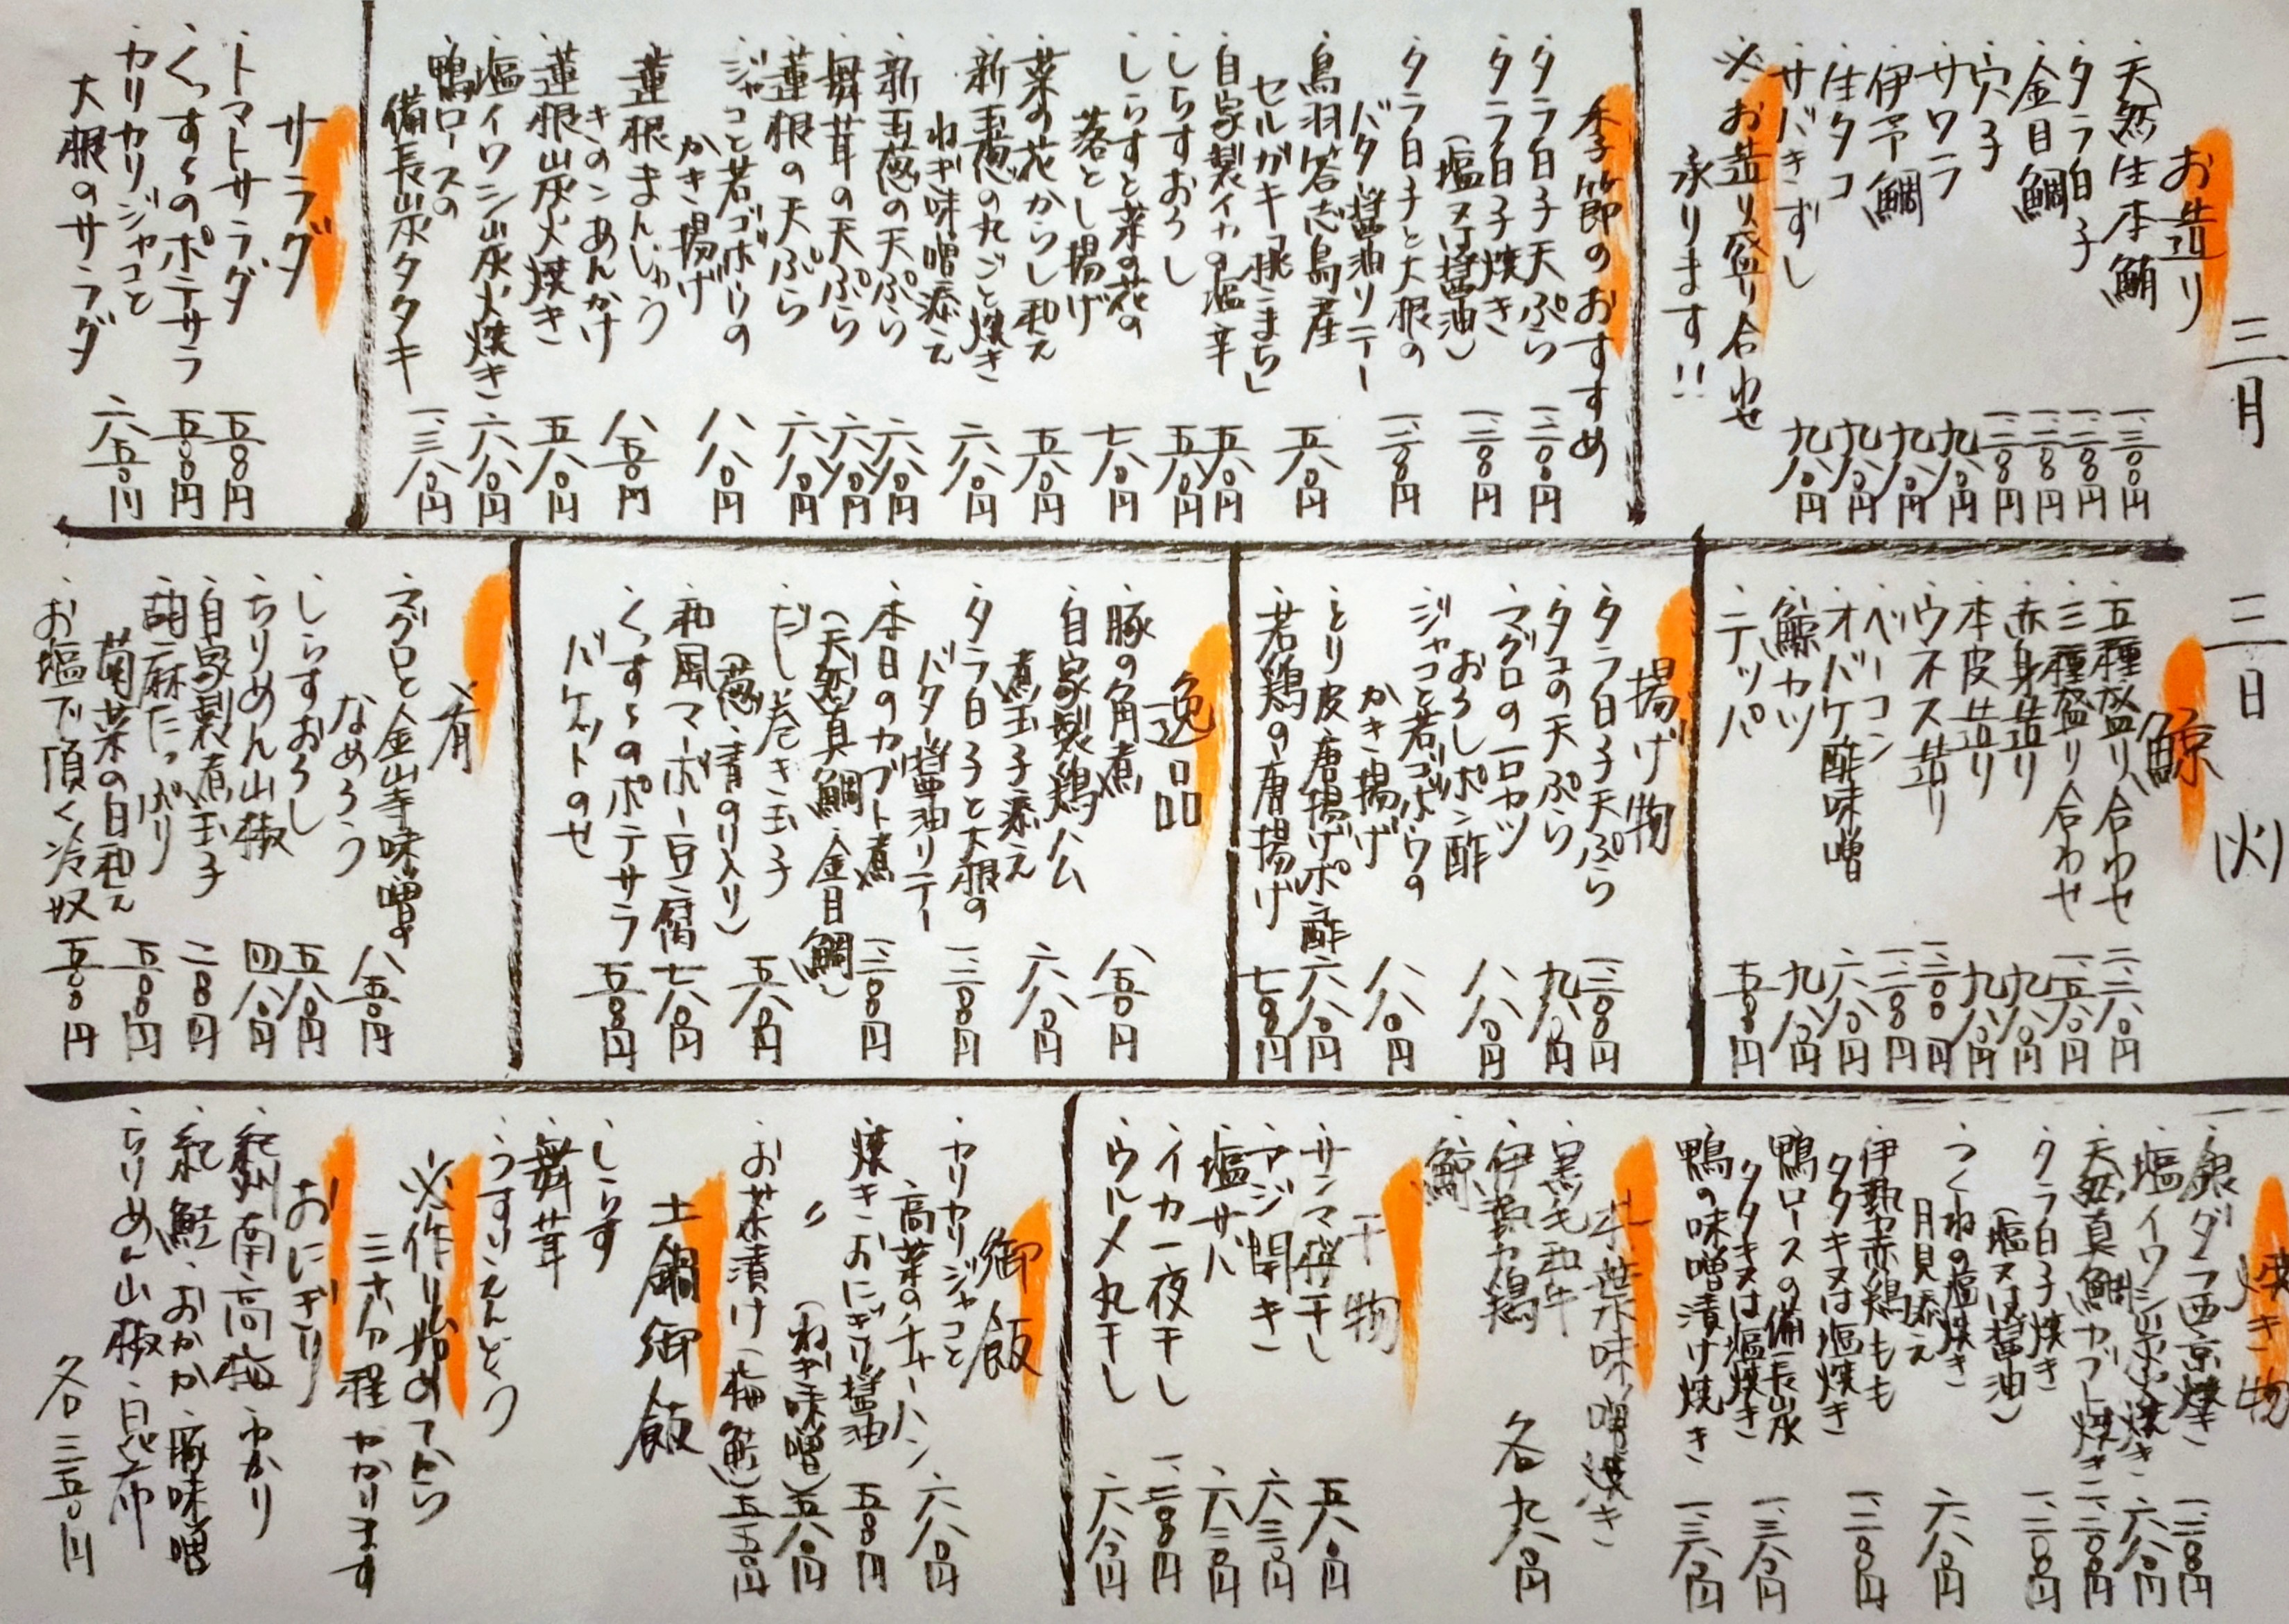 三月
三日
(火)
お造り
・天然生本鮪 一、三〇〇円
・タラ白子 一、二〇〇円
・金目鯛 一、二〇〇円
・穴子 一、二〇〇円
・サワラ 九八〇円
・伊予鯛 九八〇円
・生タコ 九八〇円
・サバきずし 九八〇円
※お造り盛り合わせ
承ります!!
季節のおすすめ
・タラ白子天ぷら 一、二〇〇円
・タラ白子焼き
(塩又は醤油) 一、二〇〇円
・タラ白子と大根の
バター醤油ソテー 一、二〇〇円
・鳥羽答志島産
セルガキ「桃こまち」 五八〇円
・自家製イカの塩辛 五八〇円
・しらすおろし 五八〇円
・しらすと菜の花の
落とし揚げ 七八〇円
・菜の花からし和え 五八〇円
・新玉葱の丸ごと焼き
ねぎ味噌添え 六八〇円
・新玉葱の天ぷら 六八〇円
・舞茸の天ぷら 六八〇円
・蓮根の天ぷら 六八〇円
・ジャコと若ゴボウの
かき揚げ 八八〇円
・蓮根まんじゅう
きのこあんかけ 八五〇円
・蓮根炭火焼き 五八〇円
・塩イワシ炭火焼き 六八〇円
・鴨ロースの
備長炭タタキ 一、三八〇円
サラダ
・トマトサラダ 五〇〇円
・くっすぅのポテサラ 五〇〇円
・カリカリジャコと
大根のサラダ 六五〇円
鯨
・五種盛り合わせ 二、二八〇円
・三種盛り合わせ 一、五八〇円
・赤身造り 九八〇円
・本皮造り 九八〇円
・ウネス造り 一、二〇〇円
・ベーコン 一、二〇〇円
・オバケ酢味噌 六八〇円
・鯨カツ 九八〇円
・テッパ 五〇〇円
揚げ物
・タラ白子天ぷら 一、二〇〇円
・タコの天ぷら 九八〇円
・マグロの一口カツ
おろしポン酢 八八〇円
・ジャコと若ゴボウの
かき揚げ 八八〇円
・とり皮唐揚げポン酢 六八〇円
・若鶏の唐揚げ 七八〇円
逸品
・豚の角煮 八五〇円
・自家製鶏ハム
煮玉子添え 六八〇円
・タラ白子と大根の
バター醤油ソテー 一、二〇〇円
・本日のカブト煮
(天然真鯛・金目鯛) 一、二〇〇円
・だし巻き玉子
(葱・青のり入り) 五八〇円
・和風マーボー豆腐 七八〇円
・くっすぅのポテサラ
バケットのせ 五〇〇円
肴
・マグロと金山寺味噌の
なめろう 八五〇円
・しらすおろし 五八〇円
・ちりめん山椒 四八〇円
・自家製煮玉子 二〇〇円
・胡麻たっぷり
菊菜の白和え 五〇〇円
・お塩で頂く冷奴 五〇〇円
焼き物
・銀ダラ西京焼き 一、二〇〇円
・塩イワシ炭火焼き 六八〇円
・天然真鯛カブト焼き 一、二〇〇円
・タラ白子焼き
(塩又は醤油) 一、二〇〇円
・つくねの塩焼き
月見添え 六八〇円
・伊勢赤鶏もも
タタキ又は塩焼き 一、二〇〇円
・鴨ロースの備長炭
タタキ又は塩焼き 一、三八〇円
・鴨の味噌漬け焼き 一、三八〇円
朴葉味噌焼き
・黒毛和牛
・伊勢赤鶏
・鯨
各九八〇円
干物
・サンマ桜干し 五八〇円
・アジ開き 六三〇円
・塩サバ 六三〇円
・イカ一夜干し 一、二〇〇円
・ウルメ丸干し 六八〇円
御飯
・カリカリジャコと
高菜のチャーハン 六八〇円
・焼きおにぎり醤油 五〇〇円
〃 (ねぎ味噌) 五八〇円
・お茶漬け(梅・鮭) 五五〇円
土鍋御飯
・しらす
・舞茸
・うすいえんどう
※作り始めてから
三十分程かかります
おにぎり
・紀州南高梅・ゆかり
・紅鮭・おかか・豚味噌
・ちりめん山椒・昆布
各三五〇円